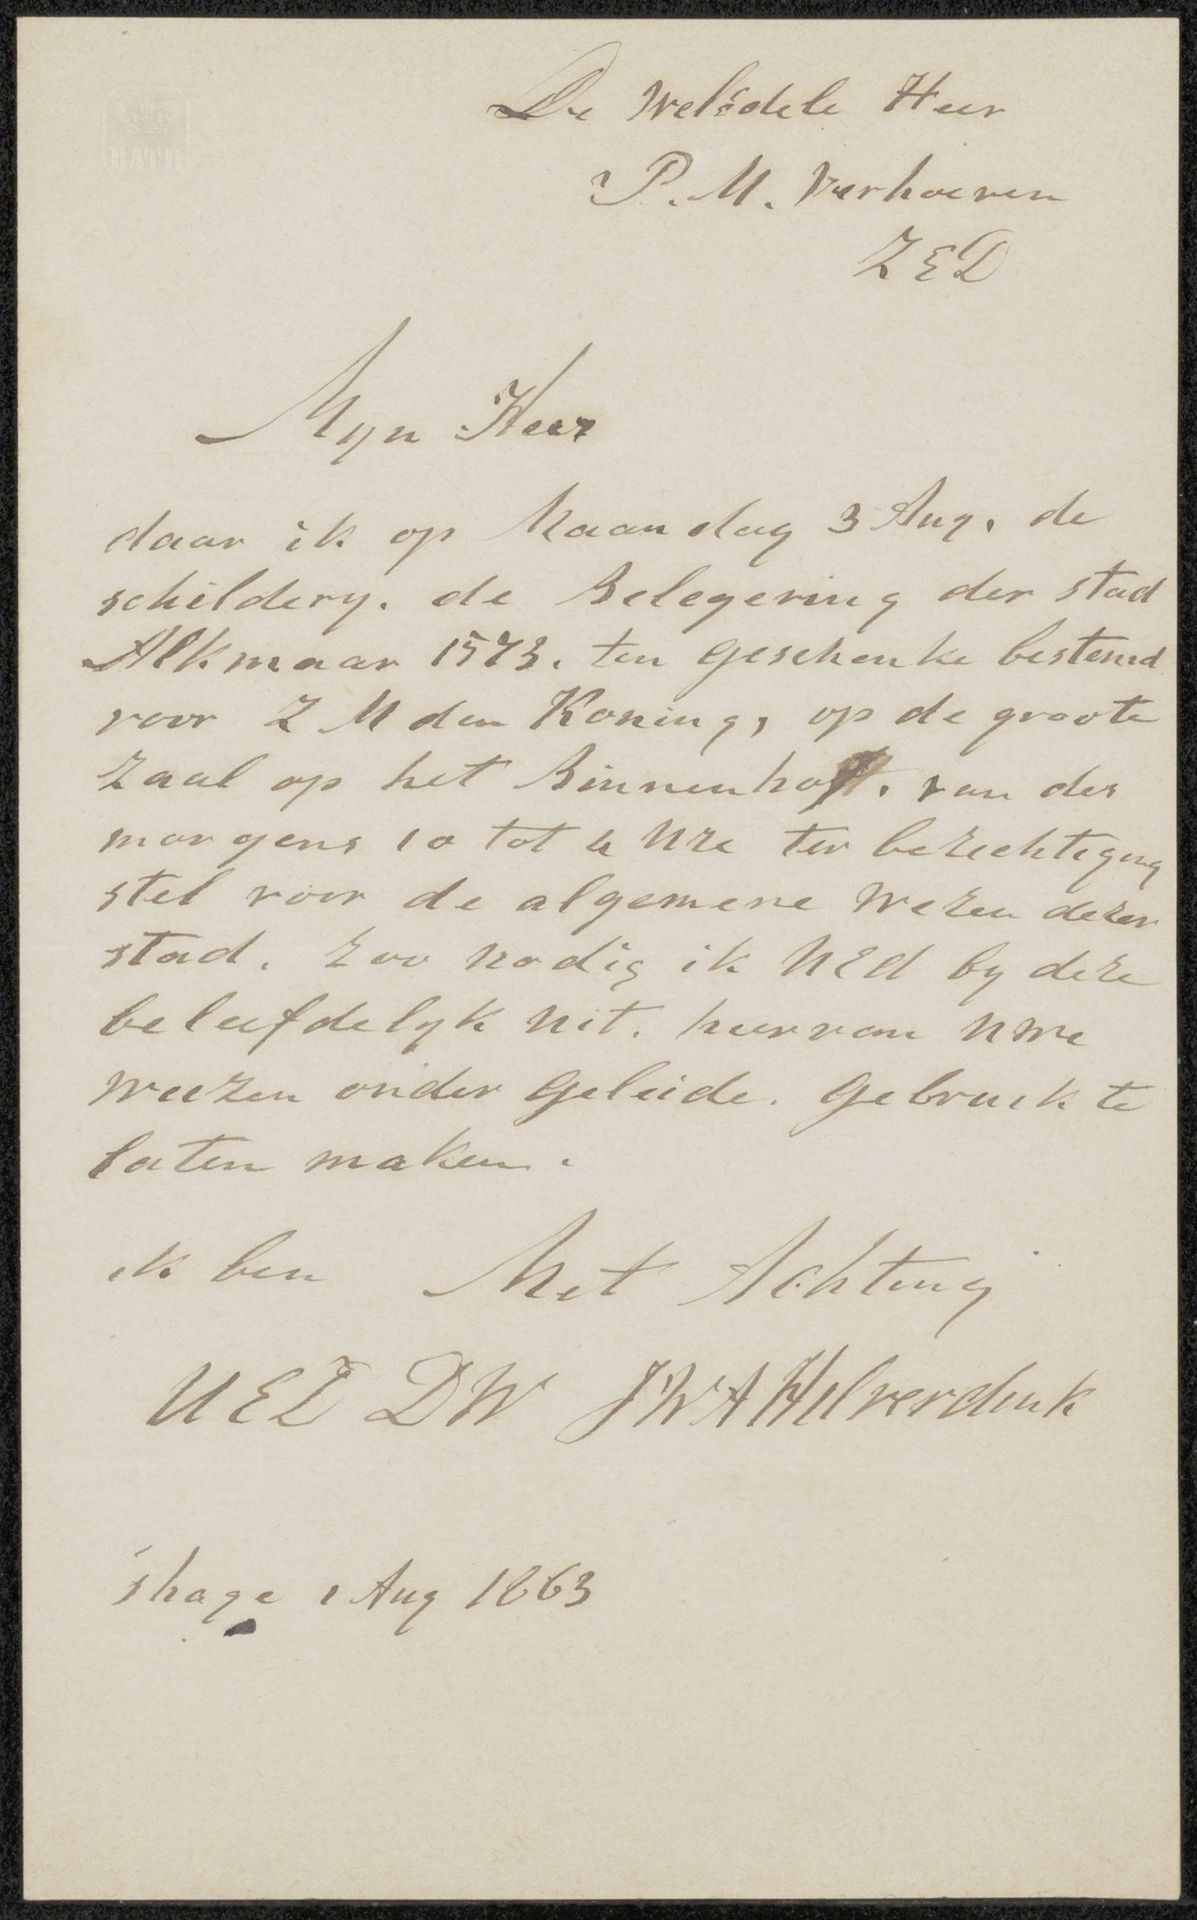 De Welédele Heer
P. M. Verhoeven
Z E D
Myn Heer
daar ik op Maandag 3 Aug. de
schildery. de Belegering der stad
Alkmaar 1573. ten geschenke bestemd
voor Z M den Koning, op de groote
zaal op het Binnenhof. van des
morgens 10 tot 4 Ure ter bezechtiging
stel voor de algemene Wezen dezer
stad. zoo nodig ik UEd by deze
beleefdelyk uit. hiervan Uwe
Weezen onder geleide. gebruik te
laten maken.
ik ben Met Achting
U E D D W J W A Hilverdink
's hage 1 Aug 1863